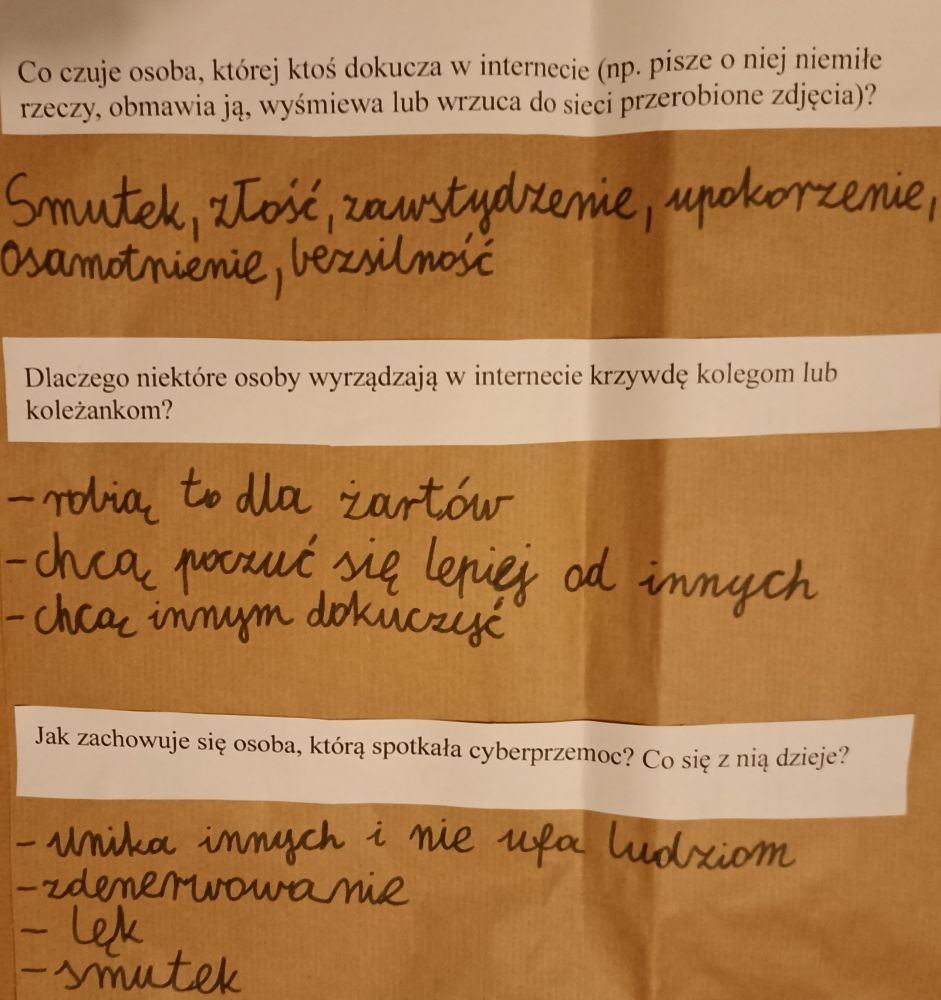 Co czuje osoba, której ktoś dokucza w internecie (np. pisze o niej niemiłe
rzeczy, obmawia ją, wyśmiewa lub wrzuca do sieci przerobione zdjęcia)?
Smutek, złość, zawstydzenie, upokorzenie,
osamotnienie, bezsilność
Dlaczego niektóre osoby wyrządzają w internecie krzywdę kolegom lub
koleżankom?
- robią to dla żartów
- chcą poczuć się lepiej od innych
- chcą innym dokuczyć
Jak zachowuje się osoba, którą spotkała cyberprzemoc? Co się z nią dzieje?
- unika innych i nie ufa ludziom
- zdenerwowanie
- lęk
- smutek